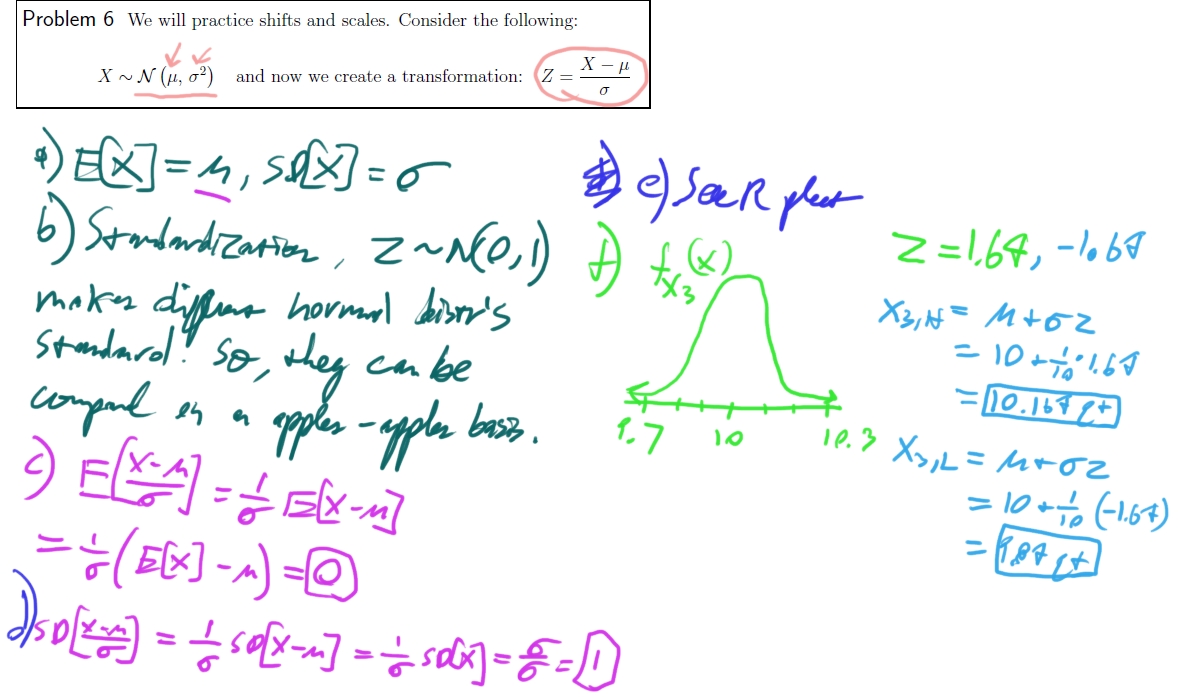 Problem 6 We will practice shifts and scales. Consider the following:
X ∼ N (μ, σ²) and now we create a transformation: Z = (X − μ)/σ
a) E[X] = μ, SD[X] = σ
b) Standardization, Z ~ N(0,1)
makes different normal distr's
standard! So, they can be
compared on an apples-apples basis.
c) E[(X-μ)/σ] = 1/σ E[X-μ]
= 1/σ (E[X] - μ) = 0
d) SD[(X-μ)/σ] = 1/σ SD[X-μ] = 1/σ SD[X] = σ/σ = 1
e) See R plot
f) f_X3(x)
9.7 10 10.3
Z = 1.64, -1.64
X3,H = μ + σz
= 10 + 1/10 · 1.64
= 10.164 qt
X3,L = μ + σz
= 10 + 1/10 (-1.64)
qt